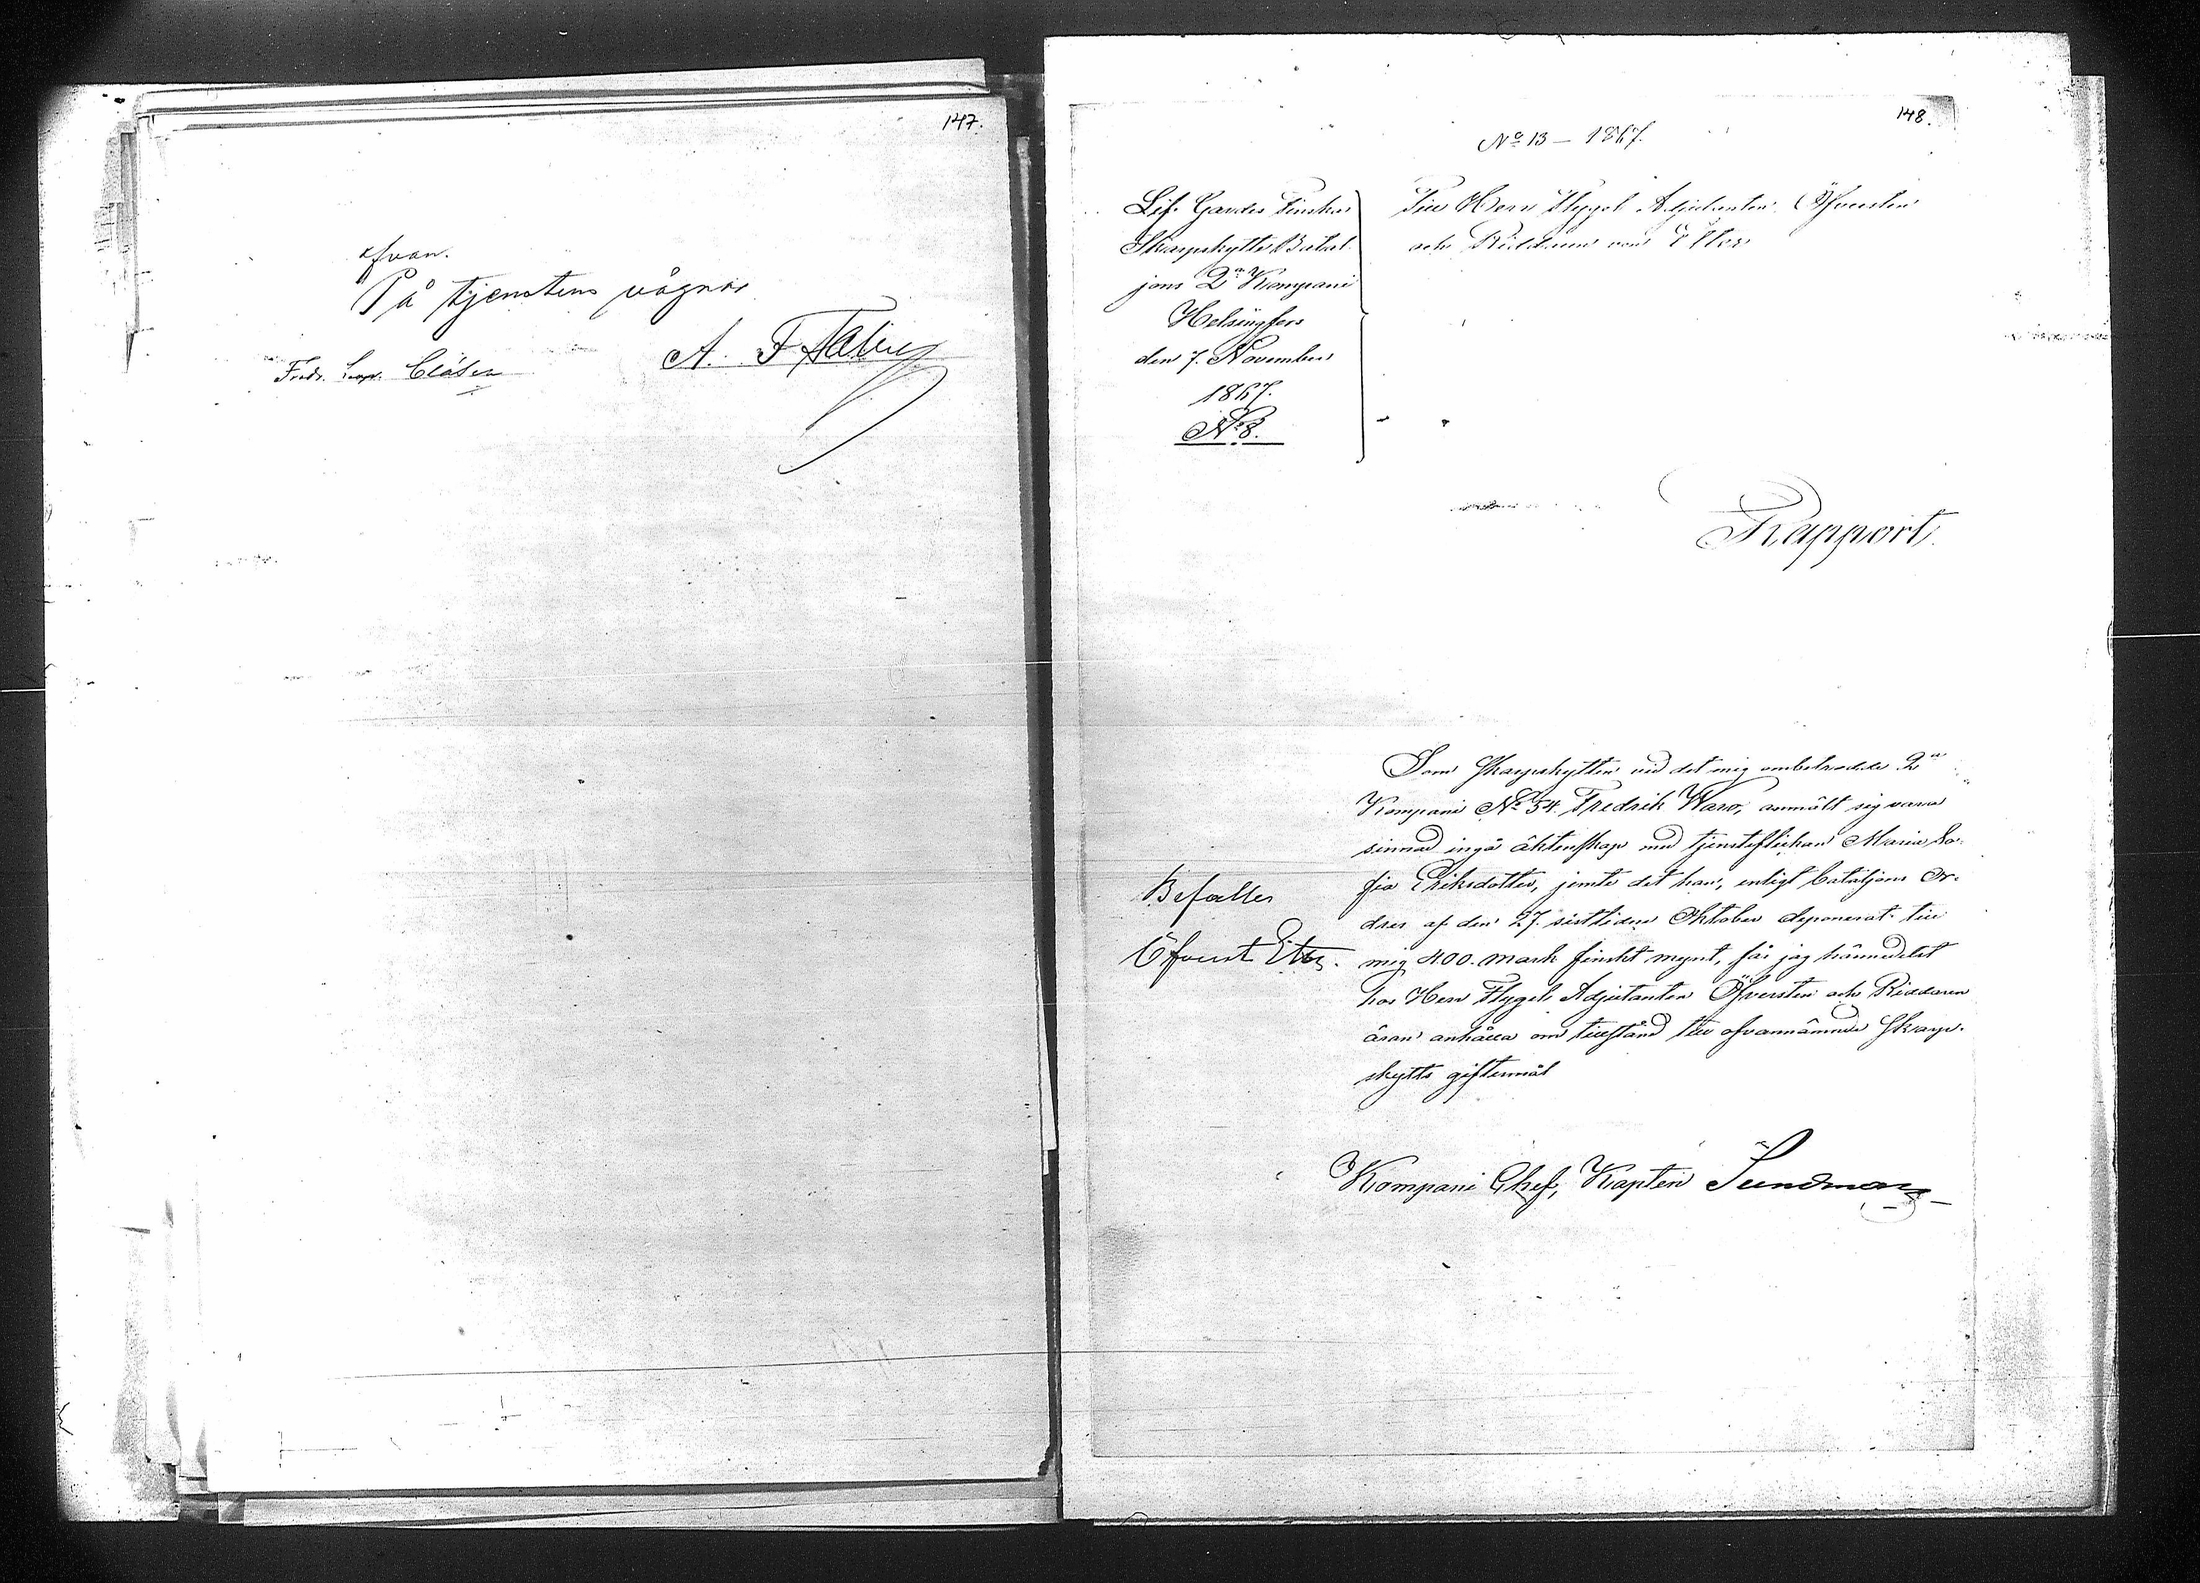 147.
ofvan.
På tjenstens vägnar
A. F.
Fredr. Leop. Clásen
148.
No 13 – 1867.
Lif-Gardes Finska
Skarpskytte Batal-
jons 2a Kompani
Helsingfors
den 7. November
1867.
No 8.
Till Herr Flygel Adjutanten Öfversten
och Riddaren von Etter
Rapport.
Som skarpskytten vid det mig ombetrodde 2a
Kompani No 54. Fredrik Waro, anmält sig vara
sinnad ingå äktenskap med tjensteflickan Maria So-
fia Eriksdotter, jemte det han, enligt bataljons or-
dres af den 27. sistlidne Oktober deponerat till
mig 400. mark finskt mynt, får jag härmedelst
hos Herr Flygel Adjutanten Öfversten och Riddaren
äran anhålla om tillstånd till ofvannämnde skarp-
skytts giftermål
Befalles
Öfverst Etter.
Kompani Chef, Kapten Sundman